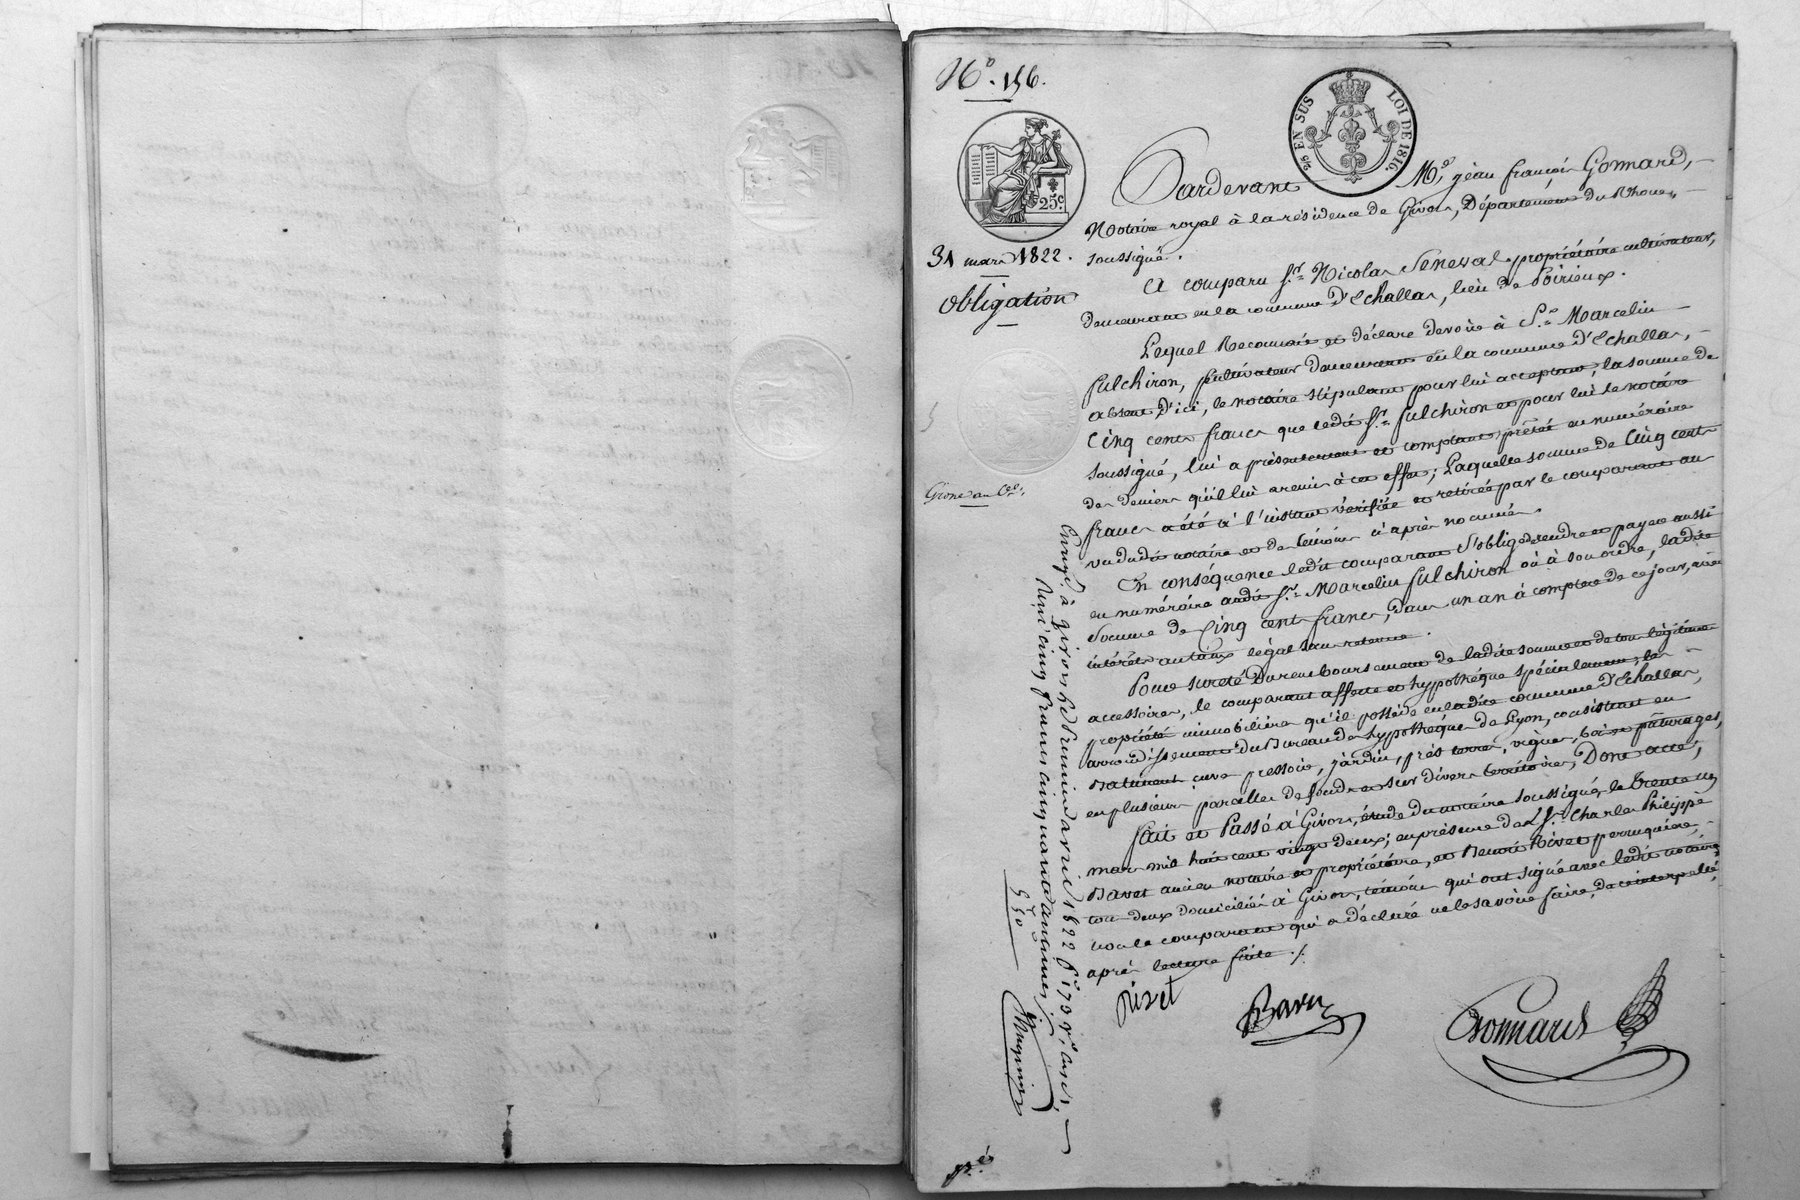 N.º 156.
2/5 EN SUS LOI DE 1816.
25c.
31 mars 1822.
Obligation
Pardevant M.e jean françois Gomard,
Notaire royal à la résidence de Givors, Département du Rhone,
soussigné.
A comparu S.r Nicolas Seneval propriétaire cultivateur,
demeurant en la commune d'Echallas, lieu de Poirieux.
Lequel Reconnait et déclare devoir à S.r Marcelin
fulchiron, cultivateur demeurant en la commune d'Echallas,
absent d'ici, le notaire stipulant pour lui acceptant, la somme de
Cinq cents francs que ledit S.r fulchiron et pour lui le notaire
soussigné, lui a présentement et comptant prêtée en numéraire
des deniers qu'il lui a remis à cet effet; Laquelle somme de Cinq cents
francs a été à l'instant vérifiée et retirée par le comparant au
vu dudit notaire et des témoins ci après nommés.
En conséquence ledit comparant s'oblige de rendre et payer aussi
en numéraire audit S.r Marcelin fulchiron où à son ordre, ladite
somme de Cinq cents francs, dans un an à compter de ce jour, avec
intérêts au taux légal sans retenue.
Pour sureté du remboursement de ladite somme et de tous légitimes
accessoires, le comparant affecte et hypothéque spécialement, les
propriétés immobilières qu'il posséde en ladite commune d'Echallas,
arrondissement du Bureau des hypothéques de Lyon, consistant en
Batiment cuve pressoir, jardin, prés terres, vignes, bois et pâturages,
en plusieurs parcelles de fonds et sur divers territoires, Dont acte,
fait et Passé à Givors, étude du notaire soussigné, le trente un
mars mil huit cent vingt deux; en présence des S.rs Charles Philippe
Bavet ancien notaire et propriétaire, et Benoit Rivet perruquier,
tous deux domiciliés à Givors, témoins qui ont signé avec ledit notaire
non le comparant qui a déclaré ne le savoir faire, de ce interpellé,
après lecture faite ./.
Rivet Bavet Gomard
Grosse au C.er
Enregt. à givors le premier avril 1822 f.o 170 r.o cases,
Reçu cinq francs cinquante centimes
5 50